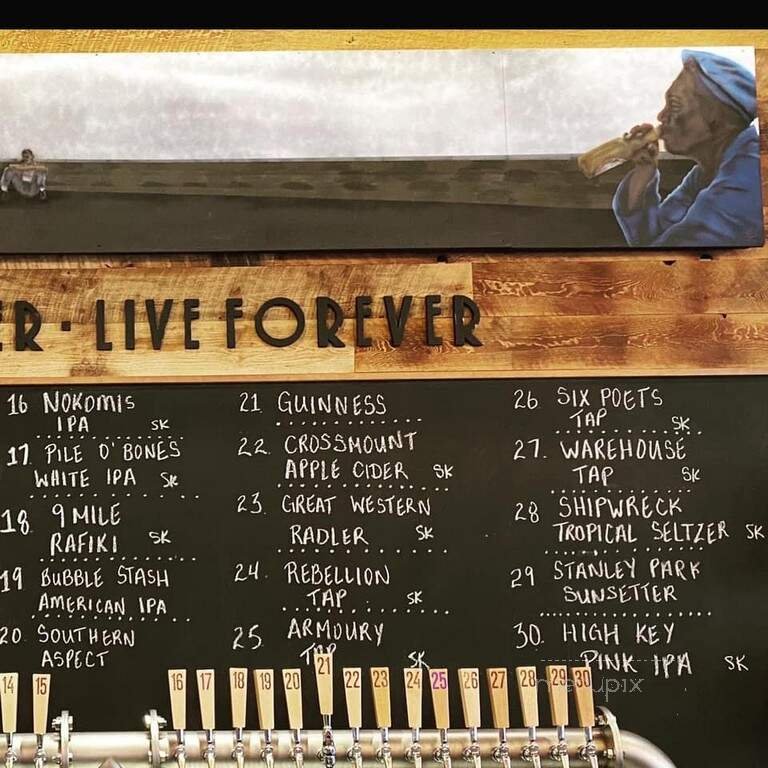 ER · LIVE FOREVER
16 NOKOMIS
IPA SK
17. PILE O' BONES
WHITE IPA SK
18. 9 MILE
RAFIKI SK
19 BUBBLE STASH
AMERICAN IPA
20. SOUTHERN
ASPECT
21 GUINNESS
22. CROSSMOUNT
APPLE CIDER SK
23. GREAT WESTERN
RADLER SK
24. REBELLION
TAP SK
25. ARMOURY
TAP SK
26 SIX POETS
TAP SK
27. WAREHOUSE
TAP SK
28 SHIPWRECK
TROPICAL SELTZER SK
29 STANLEY PARK
SUNSETTER
30. HIGH KEY
PINK IPA SK
14 15 16 17 18 19 20 21 22 23 24 25 26 27 28 29 30